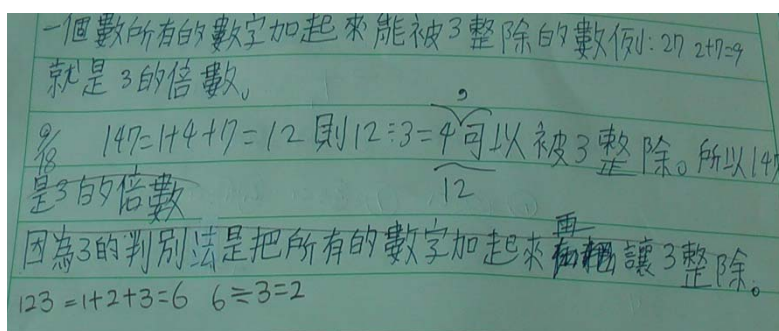 一個數所有的數字加起來能被3整除的數例:27 2+7=9
就是3的倍數。
9/18 147=1+4+7=12則12÷3=4,可以被3整除。所以147
12
是3的倍數
因為3的判別法是把所有的數字加起來再讓3整除。
123=1+2+3=6 6÷3=2